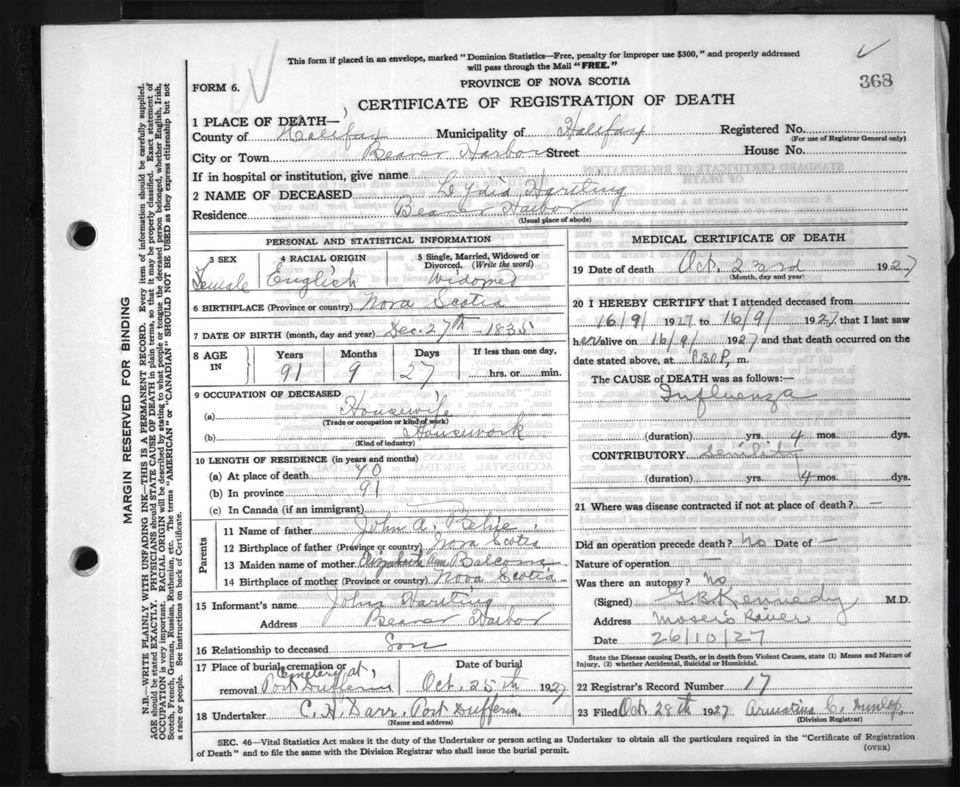 This form if placed in an envelope, marked "Dominion Statistics—Free, penalty for improper use $300," and properly addressed
will pass through the Mail "FREE."
368
FORM 6.
PROVINCE OF NOVA SCOTIA
CERTIFICATE OF REGISTRATION OF DEATH
1 PLACE OF DEATH—
County of Halifax Municipality of Halifax Registered No.
(For use of Registrar General only)
City or Town Beaver Harbor Street House No.
If in hospital or institution, give name
2 NAME OF DECEASED Lydia Hartling
Residence Beaver Harbor
(Usual place of abode)
PERSONAL AND STATISTICAL INFORMATION
3 SEX 4 RACIAL ORIGIN 5 Single, Married, Widowed or
Divorced. (Write the word)
Female English Widowed
6 BIRTHPLACE (Province or country) Nova Scotia
7 DATE OF BIRTH (month, day and year) Dec. 27th 1835
8 AGE IN Years Months Days If less than one day,
91 9 27 hrs. or min.
9 OCCUPATION OF DECEASED
(a) Housewife
(Trade or occupation or kind of work)
(b) Housework
(Kind of industry)
10 LENGTH OF RESIDENCE (in years and months)
(a) At place of death 70
(b) In province 91
(c) In Canada (if an immigrant)
Parents
11 Name of father John A.
12 Birthplace of father (Province or country) Nova Scotia
13 Maiden name of mother Elizabeth Ann Balcom
14 Birthplace of mother (Province or country) Nova Scotia
15 Informant's name John Hartling
Address Beaver Harbor
16 Relationship to deceased Son
17 Place of burial, cremation or removal Cemetery at, Port Dufferin
Date of burial Oct. 25th 1927
18 Undertaker C. H. Darr. Port Dufferin
(Name and address)
MEDICAL CERTIFICATE OF DEATH
19 Date of death Oct. 23rd 1927
(Month, day and year)
20 I HEREBY CERTIFY that I attended deceased from
16/9/ 1927 to 16/9/ 1927 that I last saw
her alive on 16/9/ 1927 and that death occurred on the
date stated above, at P.M. m.
The CAUSE of DEATH was as follows:—
Influenza
(duration) yrs. 4 mos. dys.
CONTRIBUTORY Senility
(duration) yrs. 4 mos. dys.
21 Where was disease contracted if not at place of death? —
Did an operation precede death? No Date of —
Nature of operation —
Was there an autopsy? No
(Signed) G.B. Kennedy M.D.
Address Moser's River
Date 26/10/27
State the Disease causing Death, or in death from Violent Causes, state (1) Means and Nature of
Injury, (2) whether Accidental, Suicidal or Homicidal.
22 Registrar's Record Number 17
23 Filed Oct 28th 1927 C. Dunlop
(Division Registrar)
SEC. 46—Vital Statistics Act makes it the duty of the Undertaker or person acting as Undertaker to obtain all the particulars required in the "Certificate of Registration
of Death" and to file the same with the Division Registrar who shall issue the burial permit.
(OVER)
MARGIN RESERVED FOR BINDING
N.B.—WRITE PLAINLY WITH UNFADING INK—THIS IS A PERMANENT RECORD. Every item of information should be carefully supplied.
AGE should be stated EXACTLY. PHYSICIANS should STATE CAUSE OF DEATH in plain terms, so that it may be properly classified. Exact statement of
OCCUPATION is very important. RACIAL ORIGIN will be described by stating to what people or tongue the deceased person belonged, whether English, Irish,
Scotch, French, German, Russian, Ruthenian, etc. The terms "AMERICAN" or "CANADIAN" SHOULD NOT BE USED as they express citizenship but not
a race or people. See instructions on back of Certificate.